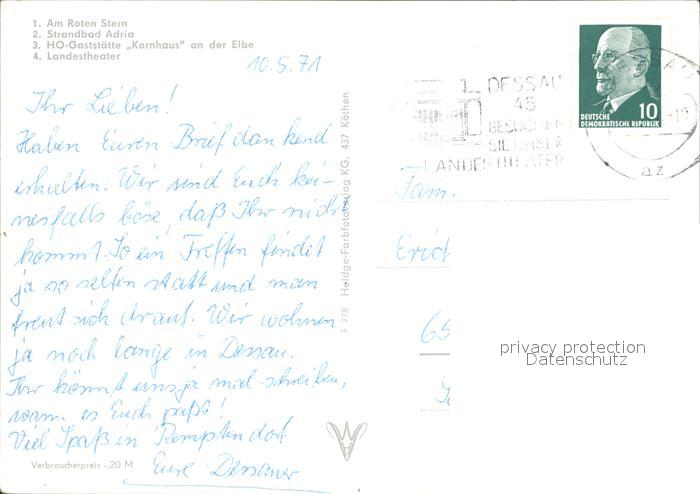 1. Am Roten Stern
2. Strandbad Adria
3. HO-Gaststätte „Kornhaus" an der Elbe
4. Landestheater
10.5.71
Ihr Lieben!
Haben Euren Brief dankend
erhalten. Wir sind Euch kei-
nesfalls böse, daß Ihr nicht
kommt. So ein Treffen findet
ja so selten statt und man
freut sich drauf. Wir wohnen
ja noch lange in Dessau.
Ihr könnt uns ja mal schreiben,
wann es Euch paßt!
Viel Spaß in Remptendorf
Eure Dessauer
Verbraucherpreis -,20 M
F 978 Heldge-Farbfotoverlag KG, 437 Köthen
1. DESSAU
45
BESUCHEN
SIE UNSER
LANDESTHEATER
az
10
DEUTSCHE
DEMOKRATISCHE REPUBLIK
Fam.
65
privacy protection
Datenschutz